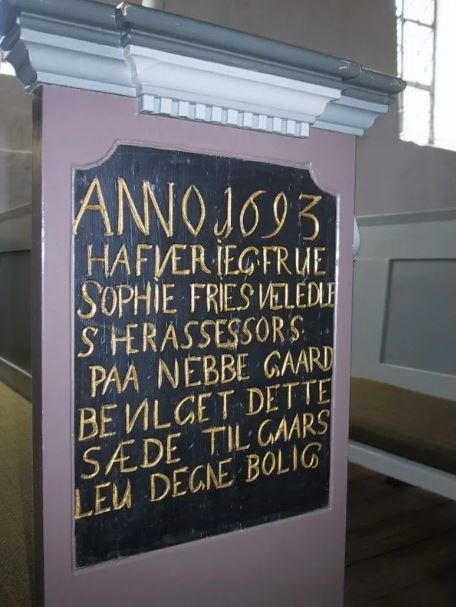 ANNO 1693
HAFVER IEG FRUE
SOPHIE FRIES VELEDLE
S HERASSESSORS
PAA NEBBE GAARD
BEVILGET DETTE
SÆDE TIL GAARS
LEU DEGNE BOLIG